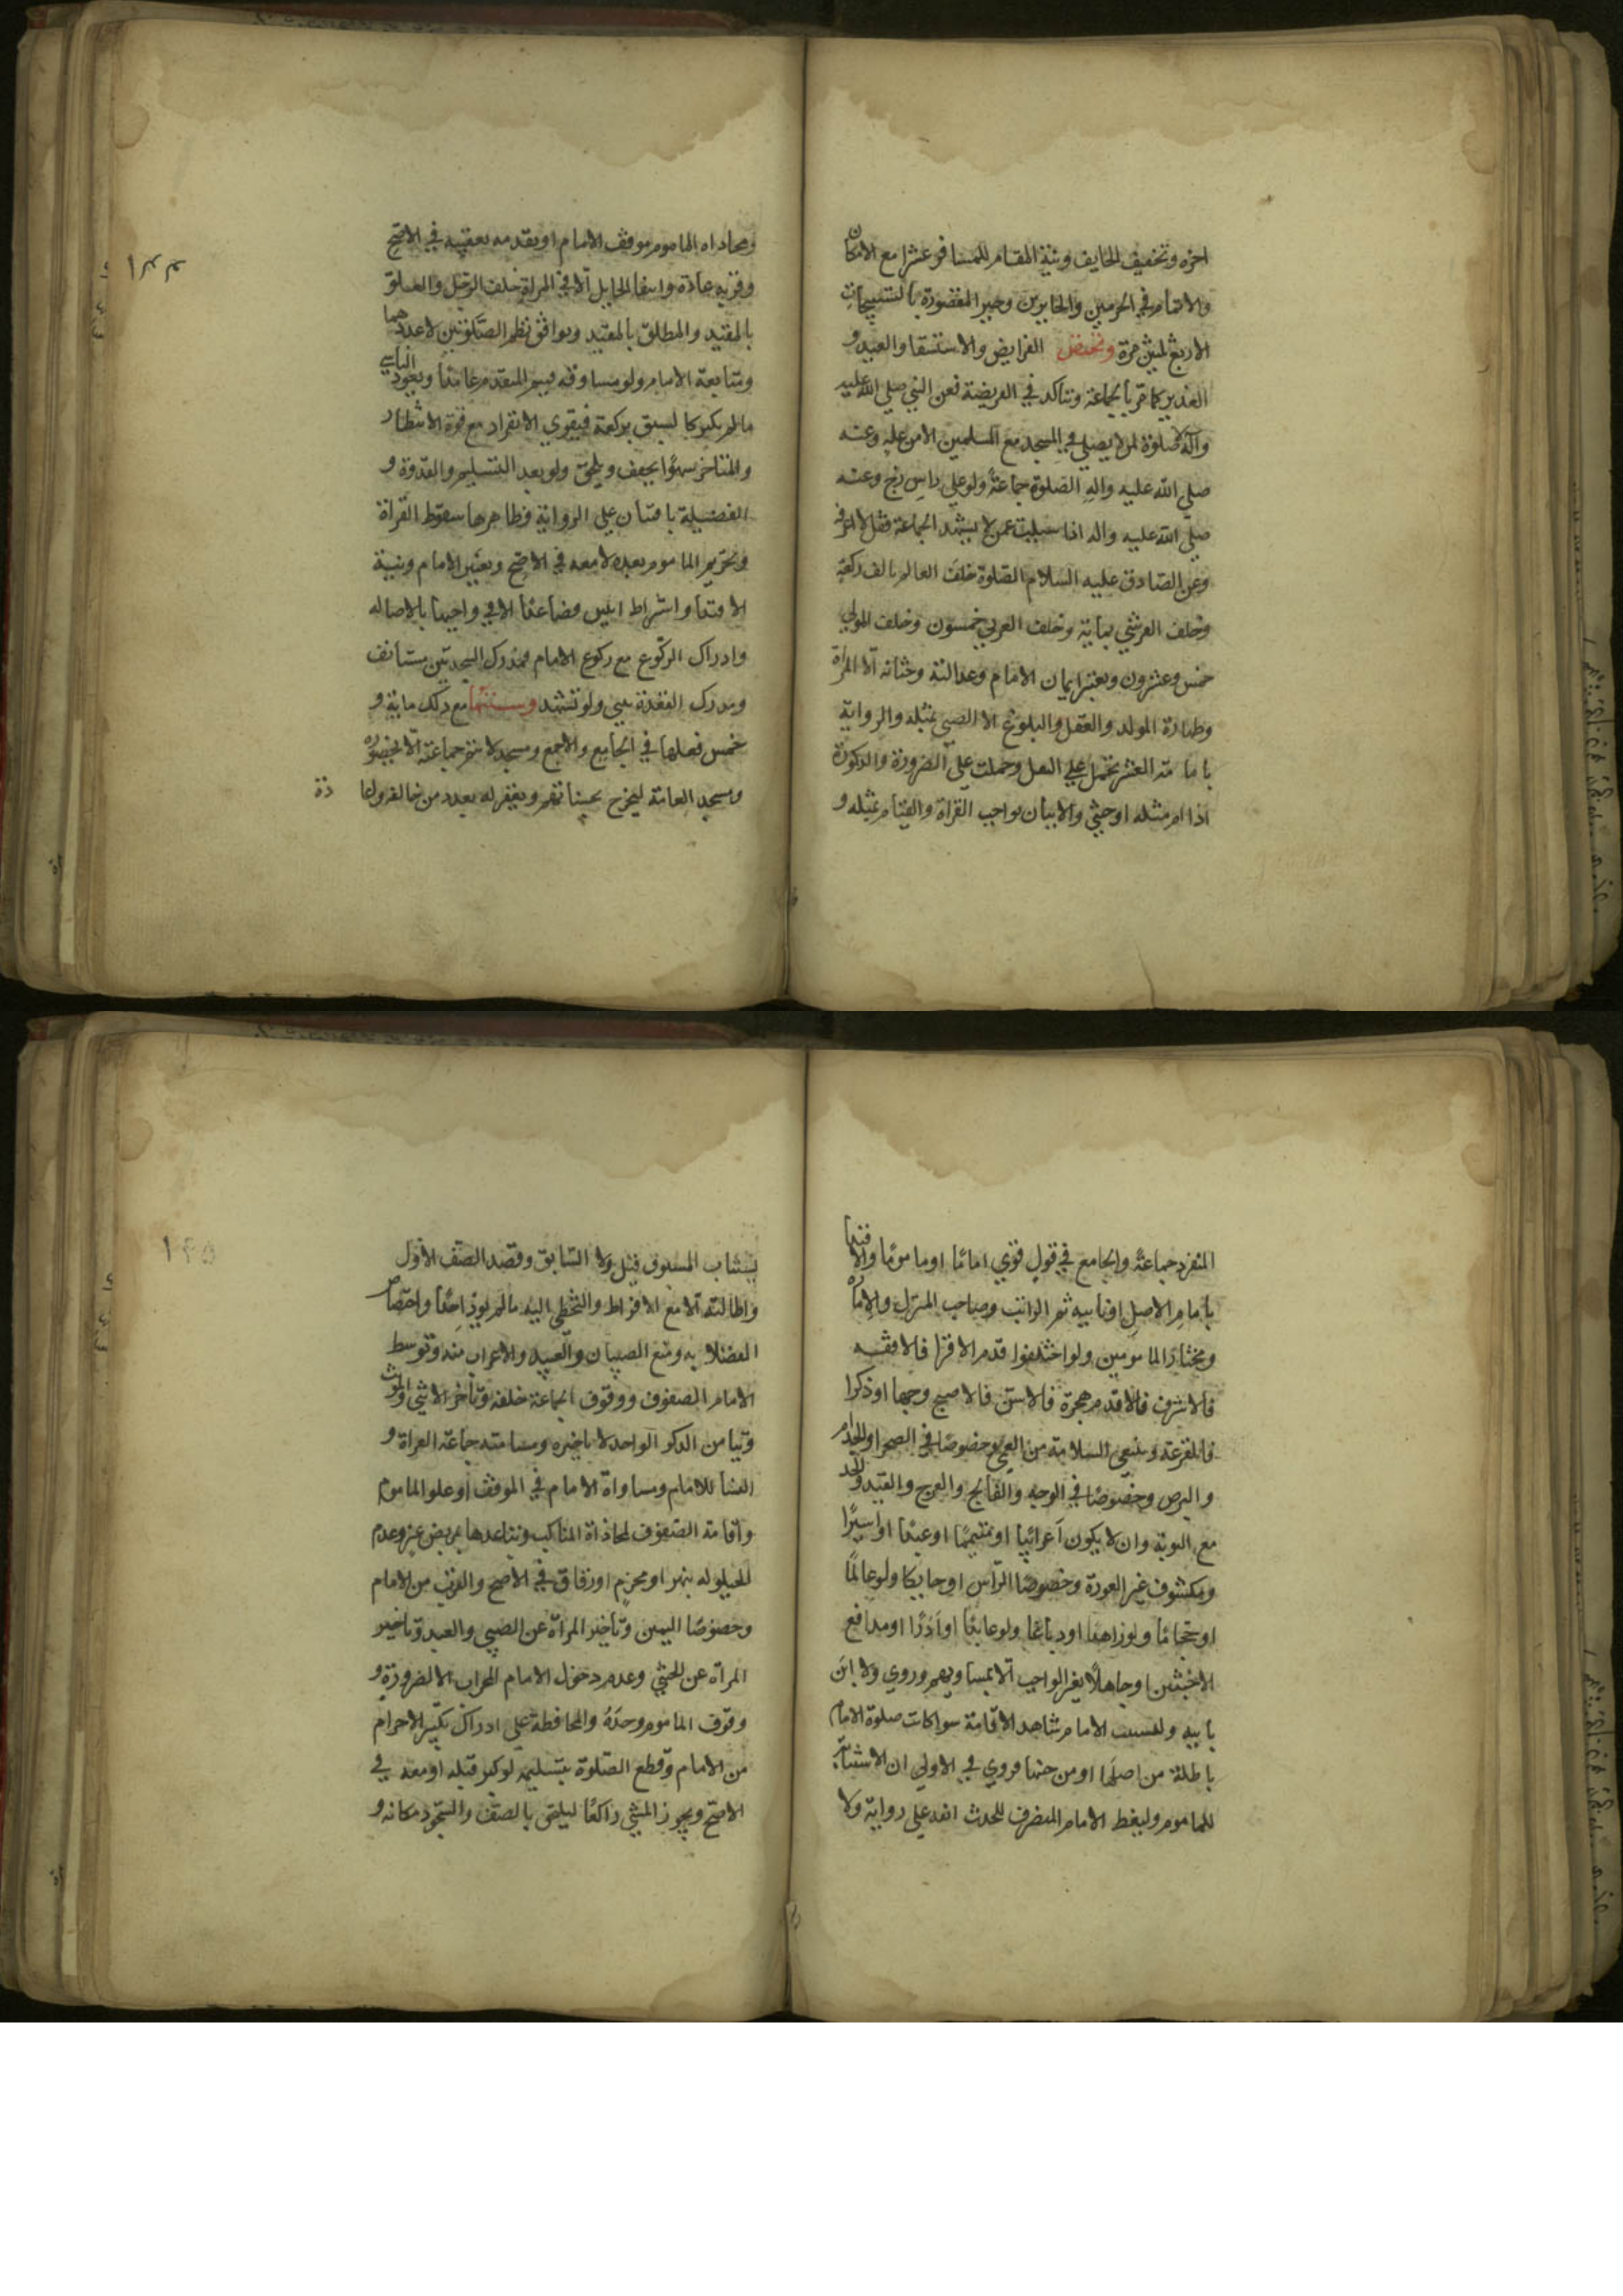 اخره وتخفيف الخايف ونية المقام للمسافر عشرا مع الامكان
والاتمام في الحرمين والحايرين وجبر المقصورة بالتسبيحات
الاربع ثلثين مرة وتختص الفرايض والاستسقا والعيد و
الغدير كما مر بالجماعة وتتاكد في الفريضة فعن النبي صلي الله عليه
وآله لا صلوة لمن لا يصلي في المسجد مع المسلمين الا من علة وعنه
صلي الله عليه واله الصلوة جماعة ولو علي راس زج وعنه
صلي الله عليه واله اذا سيلت عمن لا يشهد الجماعة فقل لا اعرفه
وعن الصادق عليه السلام الصلوة خلف العالم بالف ركعة
وخلف القرشي بماية وخلف العربي خمسون وخلف المولي
خمس وعشرون ويعتبر ايمان الامام وعدالته وختانه الا المراة
وطهارة المولد والعقل والبلوغ الا الصبي بمثله والرواية
بامامة العشر تحمل علي النفل وحملت علي الضرورة والذكورة
اذا ام مثله او خنثي والاتيان بواجب القراة والقيام بمثله و
ومحاذاه الماموم موقف الامام او تقدمه بعقبه في الاصح
وقربه عادة وانتفا الحايل الا في المراة خلف الرجل والمعلق
بالمقيد والمطلق بالمقيد وتوافق نظم الصلوتين لا عددهما
ومتابعة الامام ولو مساوقة فيستمر المتقدم عامدا ويعود الناسي
ما لم يكبر كالسبق بركعة فيقوي الانفراد مع قوة الانتظار
والمتاخر سهوا يخفف ويلحق ولو بعد التسليم والقدوة و
الفضيلة باقيتان علي الرواية وظاهرها سقوط القراة
وتحريم الماموم بعده لا معه في الاصح وتعيين الامام ونية
الاقتدا واشتراط اثنين فصاعدا الا في واجبها بالاصاله
وادراك الركوع مع ركوع الامام فمدرك السجدتين يستانف
ومدرك القعدة يبني ولو تشهد وسننها مع ذلك ماية و
خمس فعلها في الجامع والاجمع ومسجد لا تتم جماعته الا بحضوره
ومسجد العامة ليخرج بحسناتهم ويغفر له بعدد من خالفه واعا
دة
المنفرد جماعة والجامع في قول قوي اماما او ماموما والايتمام
بامام الاصل او نايبه ثم الراتب وصاحب المنزل والامارة
ومختار المامومين ولو اختلفوا قدم الاقرا فالافقه
فالاشرف فالاقدم هجرة فالاسن فالاصبح وجها او ذكرا
فالقرعة وينبغي السلامة من العمي خصوصا في الصحرا والجذام
والبرص وخصوصا في الوجه والفالج والعرج والقيد والحد
مع التوبة وان لا يكون اعرابيا او متيمما او عبدا او اسيرا
ومكشوف غير العورة وخصوصا الراس او حايكا ولو عالما
او حجاما ولو زاهدا او دباغا ولو عابدا او آدرا او مدافع
الاخبثين او جاهلا بغير الواجب الا بمساويهم وروي ولا ابن
بابيه ولينسب الامام شاهد الاقامة سوا كانت صلوة الامام
باطلة من اصلها او من حينها فروي في الاولي ان الاستنابة
للماموم وليغط الامام المنصرف للحدث انفه علي رواية ولا
يستناب المسبوق قيل ولا السابق وقصد الصف الاول
واطالته الا مع الافراط والتخطي اليه ما لم يوذ احدا واختصاص
الفضلا به ومنع الصبيان والعبيد والاعراب منه وتوسط
الامام الصفوف ووقوف الجماعة خلفه وتاخر الانثي والموت
وتيامن الذكر الواحد لا تاخيره ومسامتة جماعة العراة و
النسا للامام ومساواة الامام في الموقف او علو الماموم
واقامة الصفوف لمحاذاة المناكب وتباعدها بمربض عنز وعدم
الحيلوله بنهر او مخرم او زقاق في الاصح والقرب من الامام
وخصوصا اليمين وتاخير المراة عن الصبي والعبد وتاخير
المراة عن الخنثي وعدم دخول الامام المحراب الا لضرورة و
وقوف الماموم وحده والمحافظة علي ادراك تكبير الاحرام
من الامام وقطع الصلوة بتسليمه لو كبر قبله او معه في
الاصح ويجوز المشي راكعا ليلتحق بالصف والسجود مكانه و